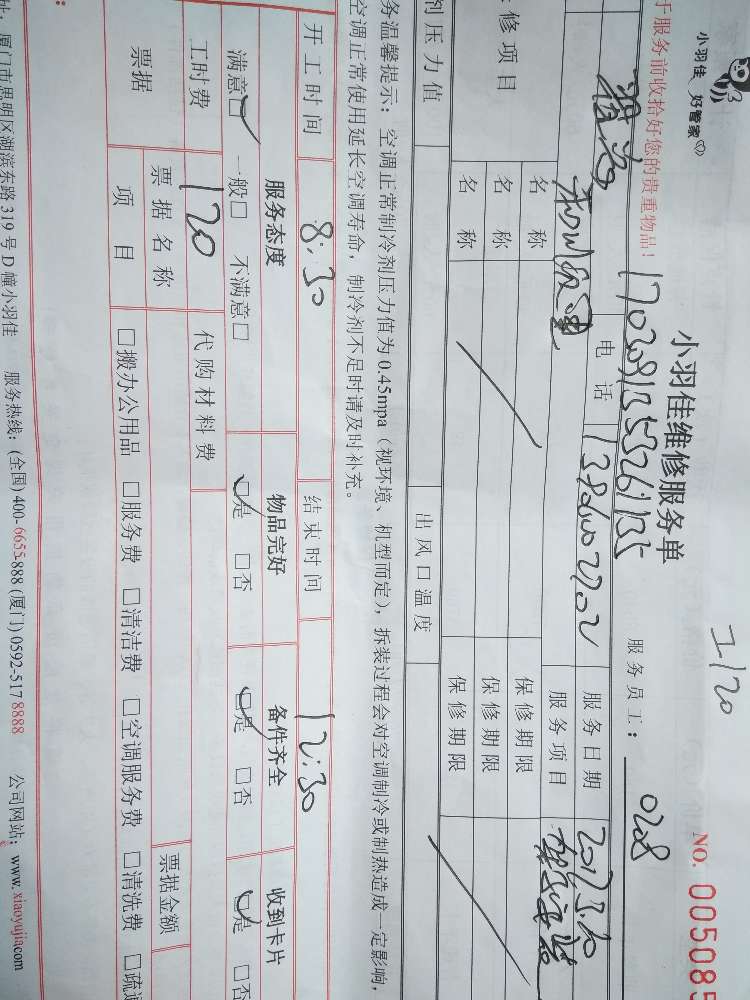 小羽佳 好管家
1/20
小羽佳维修服务单
NO. 005085
于服务前收拾好您的贵重物品!
1702091353261135
服务员工: 0208
电话
服务日期 2017.3.10
服务项目
修项目
名称
保修期限
名称
保修期限
名称
保修期限
剂压力值
出风口温度
务温馨提示: 空调正常制冷剂压力值为 0.45mpa (视环境、机型而定), 拆装过程会对空调制冷或制热造成一定影响,
空调正常使用延长空调寿命, 制冷剂不足时请及时补充。
开工时间 8:30 结束时间 12:30
服务态度 物品完好 备件齐全 收到卡片
满意□ 一般□ 不满意□ □是 □否 □是 □否 □是 □否
工时费 120 代购材料费
票据 票据名称 票据金额
项目 □搬办公用品 □服务费 □清洁费 □空调服务费 □清洗费 □疏
址: 厦门市思明区湖滨东路 319 号 D 幢小羽佳 服务热线: (全国) 400-6655-888 (厦门) 0592-517 8888 公司网站: www.xiaoyujia.com